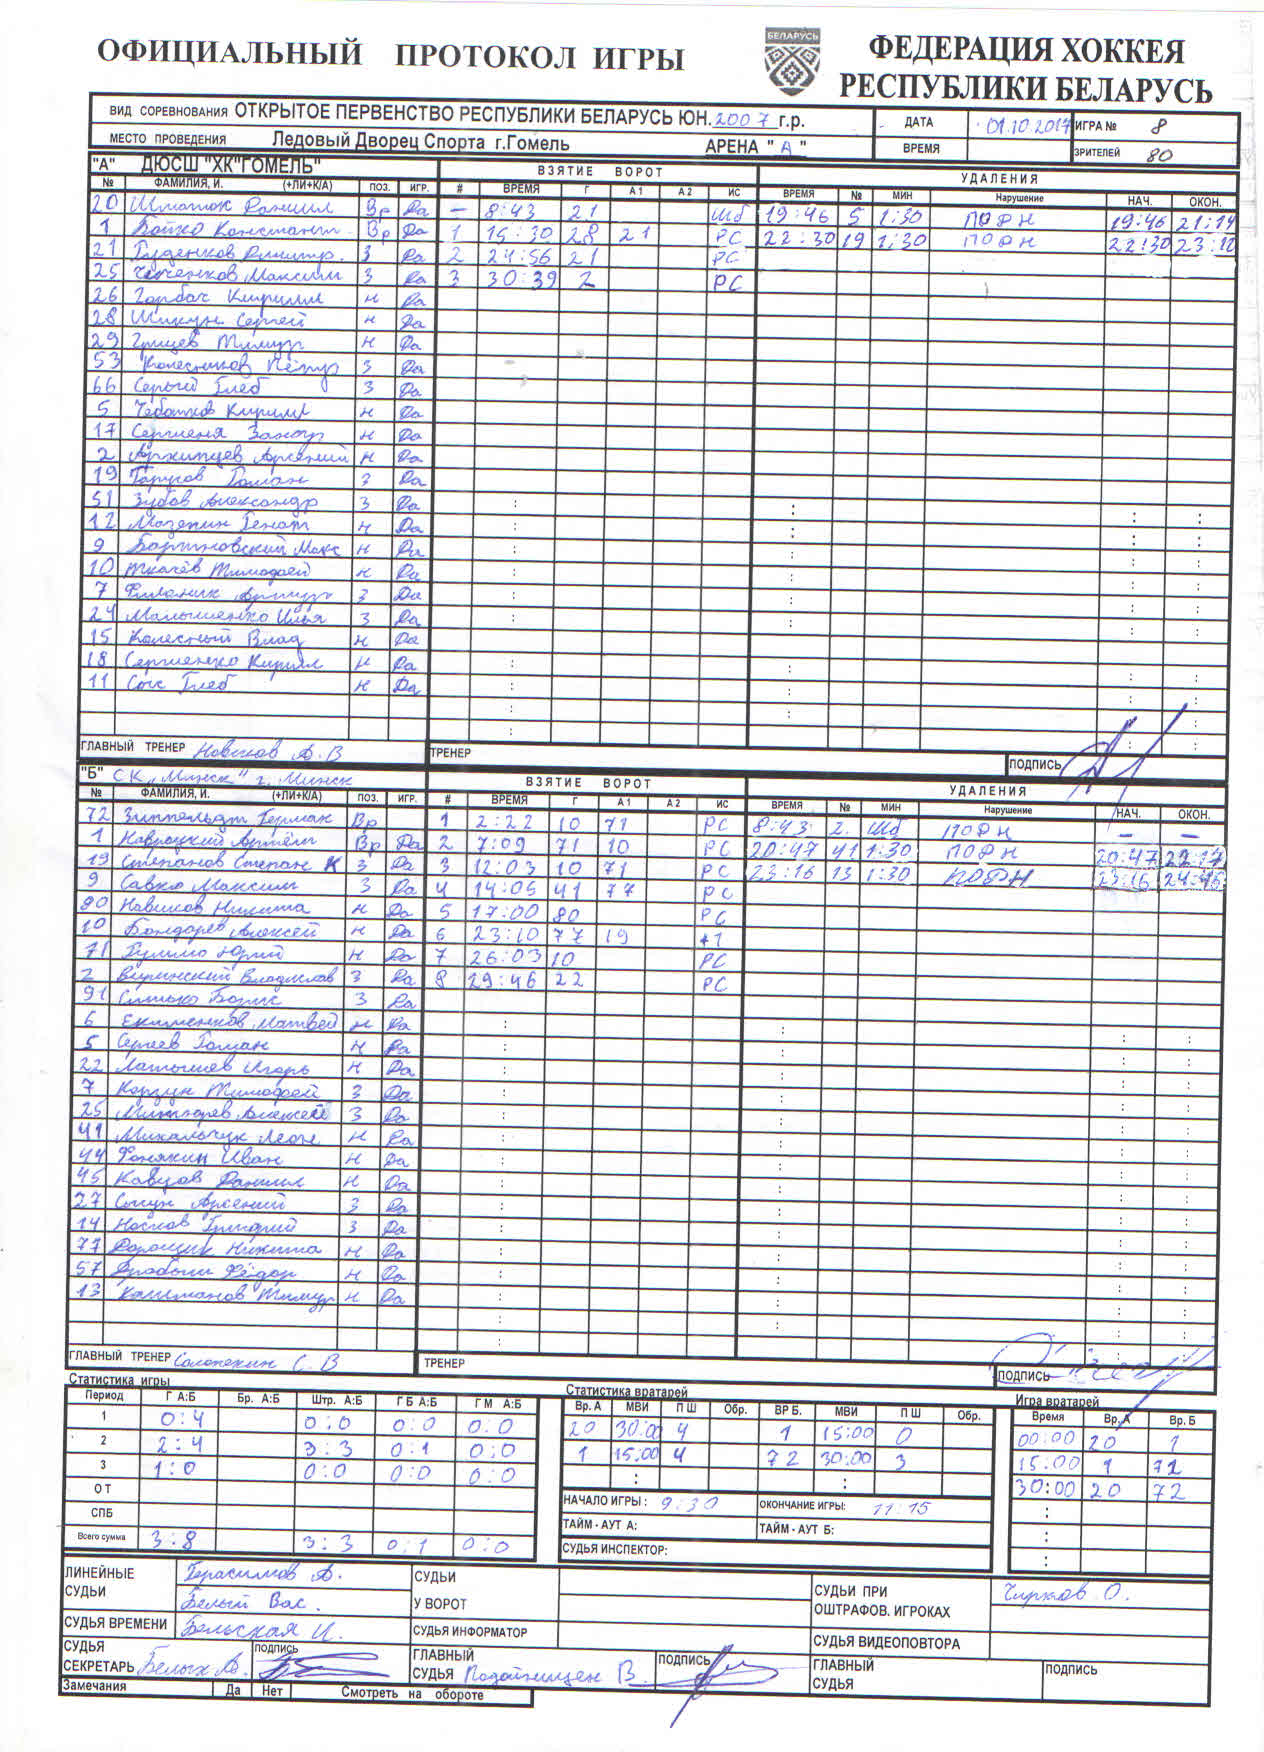 ОФИЦИАЛЬНЫЙ ПРОТОКОЛ ИГРЫ
БЕЛАРУСЬ
ФЕДЕРАЦИЯ ХОККЕЯ
РЕСПУБЛИКИ БЕЛАРУСЬ
ВИД СОРЕВНОВАНИЯ ОТКРЫТОЕ ПЕРВЕНСТВО РЕСПУБЛИКИ БЕЛАРУСЬ ЮН. 2007 г.р. ДАТА 01.10.2017 ИГРА № 8
МЕСТО ПРОВЕДЕНИЯ Ледовый Дворец Спорта г.Гомель АРЕНА "А" ВРЕМЯ ЗРИТЕЛЕЙ 80
"А" ДЮСШ "ХК"ГОМЕЛЬ" ВЗЯТИЕ ВОРОТ УДАЛЕНИЯ
№ ФАМИЛИЯ, И. (+ЛИ+К/А) ПОЗ. ИГР. # ВРЕМЯ Г А1 А2 ИС ВРЕМЯ № МИН Нарушение НАЧ. ОКОН.
20 Шматок Даниил Вр Да - 8:43 21 Шб 19:46 5 1:30 ПОРН 19:46 21:14
1 Бойко Константин Вр Да 1 15:30 28 21 РС 22:30 19 1:30 ПОРН 22:30 23:10
21 Гуденков Дмитр. З Да 2 24:56 21 РС
25 Максим З Да 3 30:39 2 РС
26 Горбач Кирилл Н Да
28 Шикун Сергей Н Да
29 Грицев Тимур Н Да
53 Колесников Пётр З Да
66 Серый Глеб З Да
5 Чеботков Кирилл Н Да
17 Сергиеня Захар Н Да
2 Архипцев Арсений Н Да
19 Роман З Да
51 Зубов Александр З Да
12 Мазепин Генат Н Да
9 Бартновский Макс Н Да
10 Ткачёв Тимофей Н Да
7 Филоник Артур З Да
24 Малышенко Илья З Да
15 Колесный Влад Н Да
18 Сергиенко Кирилл Н Да
11 Сыс Глеб Н Да
ГЛАВНЫЙ ТРЕНЕР Новиков А.В ТРЕНЕР ПОДПИСЬ
"Б" СК "Минск" г. Минск ВЗЯТИЕ ВОРОТ УДАЛЕНИЯ
№ ФАМИЛИЯ, И. (+ЛИ+К/А) ПОЗ. ИГР. # ВРЕМЯ Г А1 А2 ИС ВРЕМЯ № МИН Нарушение НАЧ. ОКОН.
72 Зиппельдт Герман Вр 1 2:22 10 71 РС 8:43 2 Шб ПОРН - -
1 Навроцкий Артём Вр Да 2 7:09 71 10 РС 20:47 41 1:30 ПОРН 20:47 22:17
19 Степанов Степан К З Да 3 12:03 10 71 РС 23:16 13 1:30 ПОРН 23:16 24:46
9 Савко Максим З Да 4 14:05 41 77 РС
80 Новиков Никита Н Да 5 17:00 80 РС
10 Бондарев Алексей Н Да 6 23:10 77 19 +1
71 Юрий Н Да 7 26:03 10 РС
2 Владислав З Да 8 29:46 22 РС
91 Ситько Борис З Да
6 Екименков Матвей Н Да
5 Сергеев Роман Н Да
22 Латышев Игорь Н Да
7 Корзун Тимофей З Да
25 Алексей З Да
41 Михальчук Леон Н Да
44 Фонякин Иван Н Да
45 Кавцов Даниил Н Да
27 Сыцук Арсений З Да
14 Носков Григорий З Да
77 Дорощик Никита Н Да
57 Дробыш Фёдор Н Да
13 Каштанов Тимур Н Да
ГЛАВНЫЙ ТРЕНЕР Солопекин С.В ТРЕНЕР ПОДПИСЬ
Статистика игры Статистика вратарей Игра вратарей
Период Г А:Б Бр. А:Б Штр. А:Б Г Б А:Б Г М А:Б Вр. А МВИ П Ш Обр. ВР Б. МВИ П Ш Обр. Время Вр. А Вр. Б
1 0:4 0:0 0:0 0:0 20 30:00 4 1 15:00 0 00:00 20 1
2 2:4 3:3 0:1 0:0 1 15:00 4 72 30:00 3 15:00 1 72
3 1:0 0:0 0:0 0:0 30:00 20 72
ОТ НАЧАЛО ИГРЫ: 9:30 ОКОНЧАНИЕ ИГРЫ: 11:15
СПБ ТАЙМ - АУТ А: ТАЙМ - АУТ Б:
Всего сумма 3:8 3:3 0:1 0:0 СУДЬЯ ИНСПЕКТОР:
ЛИНЕЙНЫЕ СУДЬИ Герасимов А. СУДЬИ У ВОРОТ СУДЬИ ПРИ ОШТРАФОВ. ИГРОКАХ Чирков О.
Белый Вас.
СУДЬЯ ВРЕМЕНИ Бельская И. СУДЬЯ ИНФОРМАТОР СУДЬЯ ВИДЕОПОВТОРА
СУДЬЯ СЕКРЕТАРЬ Белых А. ПОДПИСЬ ГЛАВНЫЙ СУДЬЯ В. ПОДПИСЬ ГЛАВНЫЙ СУДЬЯ ПОДПИСЬ
Замечания Да Нет Смотреть на обороте